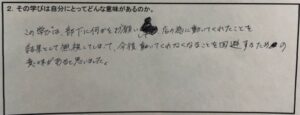 2. その学びは自分にとってどんな意味があるのか。
この学びは、部下に何かをお願い 私の為に動いてくれたことを
結果として無視してしまって、今後動いてくれなくなることを回避するための
意味があると思いました。